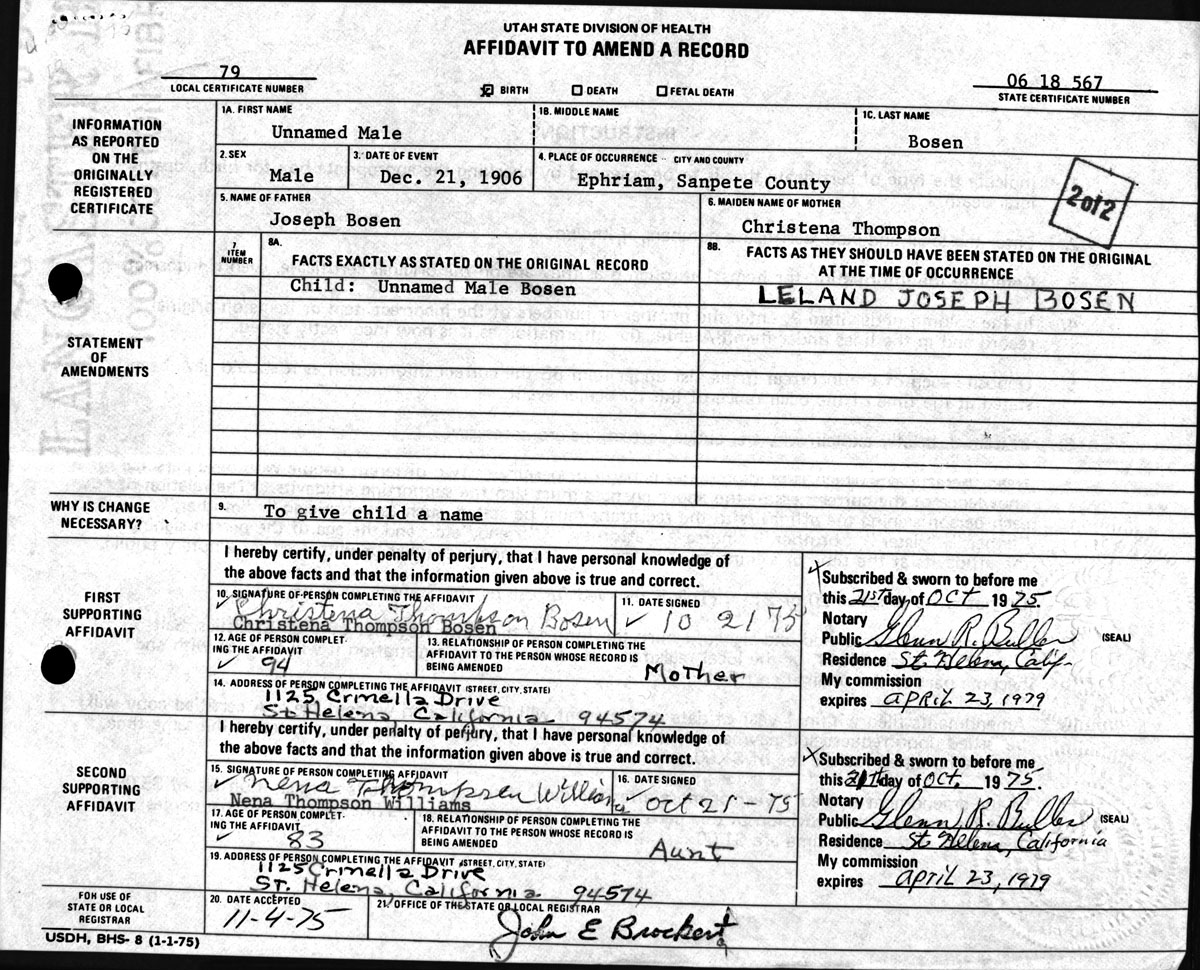 UTAH STATE DIVISION OF HEALTH
AFFIDAVIT TO AMEND A RECORD
79
LOCAL CERTIFICATE NUMBER
BIRTH DEATH FETAL DEATH
06 18 567
STATE CERTIFICATE NUMBER
INFORMATION
AS REPORTED
ON THE
ORIGINALLY
REGISTERED
CERTIFICATE
1A. FIRST NAME
Unnamed Male
1B. MIDDLE NAME
1C. LAST NAME
Bosen
2. SEX
Male
3. DATE OF EVENT
Dec. 21, 1906
4. PLACE OF OCCURRENCE - CITY AND COUNTY
Ephriam, Sanpete County
2 of 2
5. NAME OF FATHER
Joseph Bosen
6. MAIDEN NAME OF MOTHER
Christena Thompson
STATEMENT
OF
AMENDMENTS
7
ITEM
NUMBER
8A.
FACTS EXACTLY AS STATED ON THE ORIGINAL RECORD
Child: Unnamed Male Bosen
8B.
FACTS AS THEY SHOULD HAVE BEEN STATED ON THE ORIGINAL
AT THE TIME OF OCCURRENCE
LELAND JOSEPH BOSEN
WHY IS CHANGE
NECESSARY?
9.
To give child a name
FIRST
SUPPORTING
AFFIDAVIT
I hereby certify, under penalty of perjury, that I have personal knowledge of
the above facts and that the information given above is true and correct.
10. SIGNATURE OF PERSON COMPLETING THE AFFIDAVIT
Christena Thompson Bosen
Christena Thompson Bosen
11. DATE SIGNED
10 21 75
12. AGE OF PERSON COMPLET-
ING THE AFFIDAVIT
94
13. RELATIONSHIP OF PERSON COMPLETING THE
AFFIDAVIT TO THE PERSON WHOSE RECORD IS
BEING AMENDED
Mother
14. ADDRESS OF PERSON COMPLETING THE AFFIDAVIT (STREET, CITY, STATE)
1125 Crmella Drive
St Helena California 94574
Subscribed & sworn to before me
this 21st day of OCT 1975.
Notary
Public Glenn R. Buller (SEAL)
Residence St. Helena, Calif.
My commission
expires APRIL 23, 1979
SECOND
SUPPORTING
AFFIDAVIT
I hereby certify, under penalty of perjury, that I have personal knowledge of
the above facts and that the information given above is true and correct.
15. SIGNATURE OF PERSON COMPLETING AFFIDAVIT
Nena Thompson Williams
Nena Thompson Williams
16. DATE SIGNED
Oct 21-75
17. AGE OF PERSON COMPLET-
ING THE AFFIDAVIT
83
18. RELATIONSHIP OF PERSON COMPLETING THE
AFFIDAVIT TO THE PERSON WHOSE RECORD IS
BEING AMENDED
Aunt
19. ADDRESS OF PERSON COMPLETING THE AFFIDAVIT (STREET, CITY, STATE)
1125 Crmella Drive
St. Helena, California 94574
Subscribed & sworn to before me
this 21st day of OCT. 1975.
Notary
Public Glenn R. Buller (SEAL)
Residence St Helena, California
My commission
expires APRIL 23, 1979
FOR USE OF
STATE OR LOCAL
REGISTRAR
20. DATE ACCEPTED
11-4-75
21. OFFICE OF THE STATE OR LOCAL REGISTRAR
John E Brockert
USDH, BHS- 8 (1-1-75)